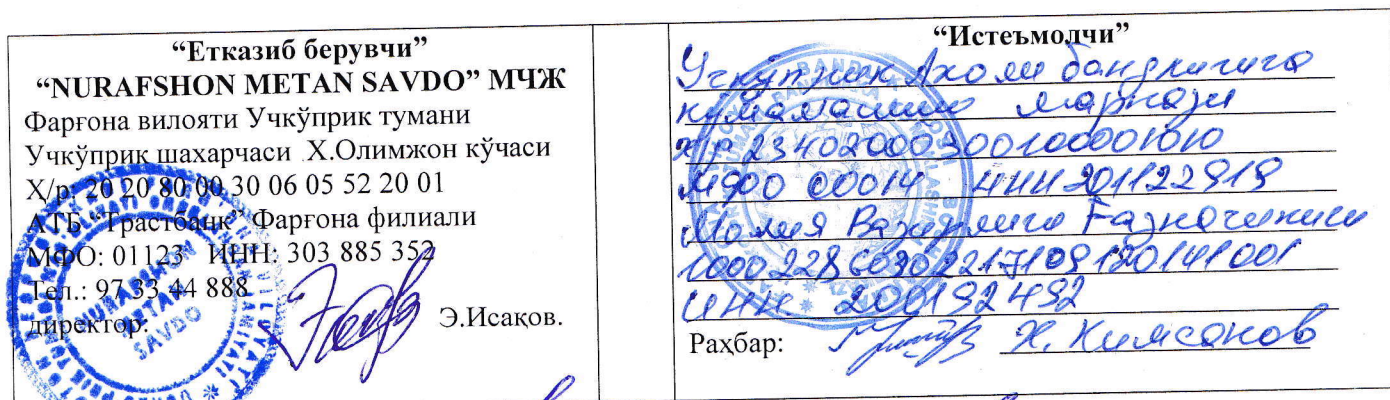 “Етказиб берувчи”
“NURAFSHON METAN SAVDO” МЧЖ
Фарғона вилояти Учкўприк тумани
Учкўприк шахарчаси Х.Олимжон кўчаси
Ҳ/р: 20 20 80 00 30 06 05 52 20 01
АТБ “Трастбанк” Фарғона филиали
МФО: 01123 ИНН: 303 885 352
Тел.: 97 33 44 888
директор: Э.Исақов.
NURAFSHON
METAN
SAVDO
“Истеъмолчи”
Учкўприк Ахоли бандлигига
кўмаклашиш маркази
х/р 23402000300100001010
МФО 00014 ИНН 201122919
Молия Вазирлиги Ғазначилиги
ИНН 200192492
Раҳбар: Х. Химсанов